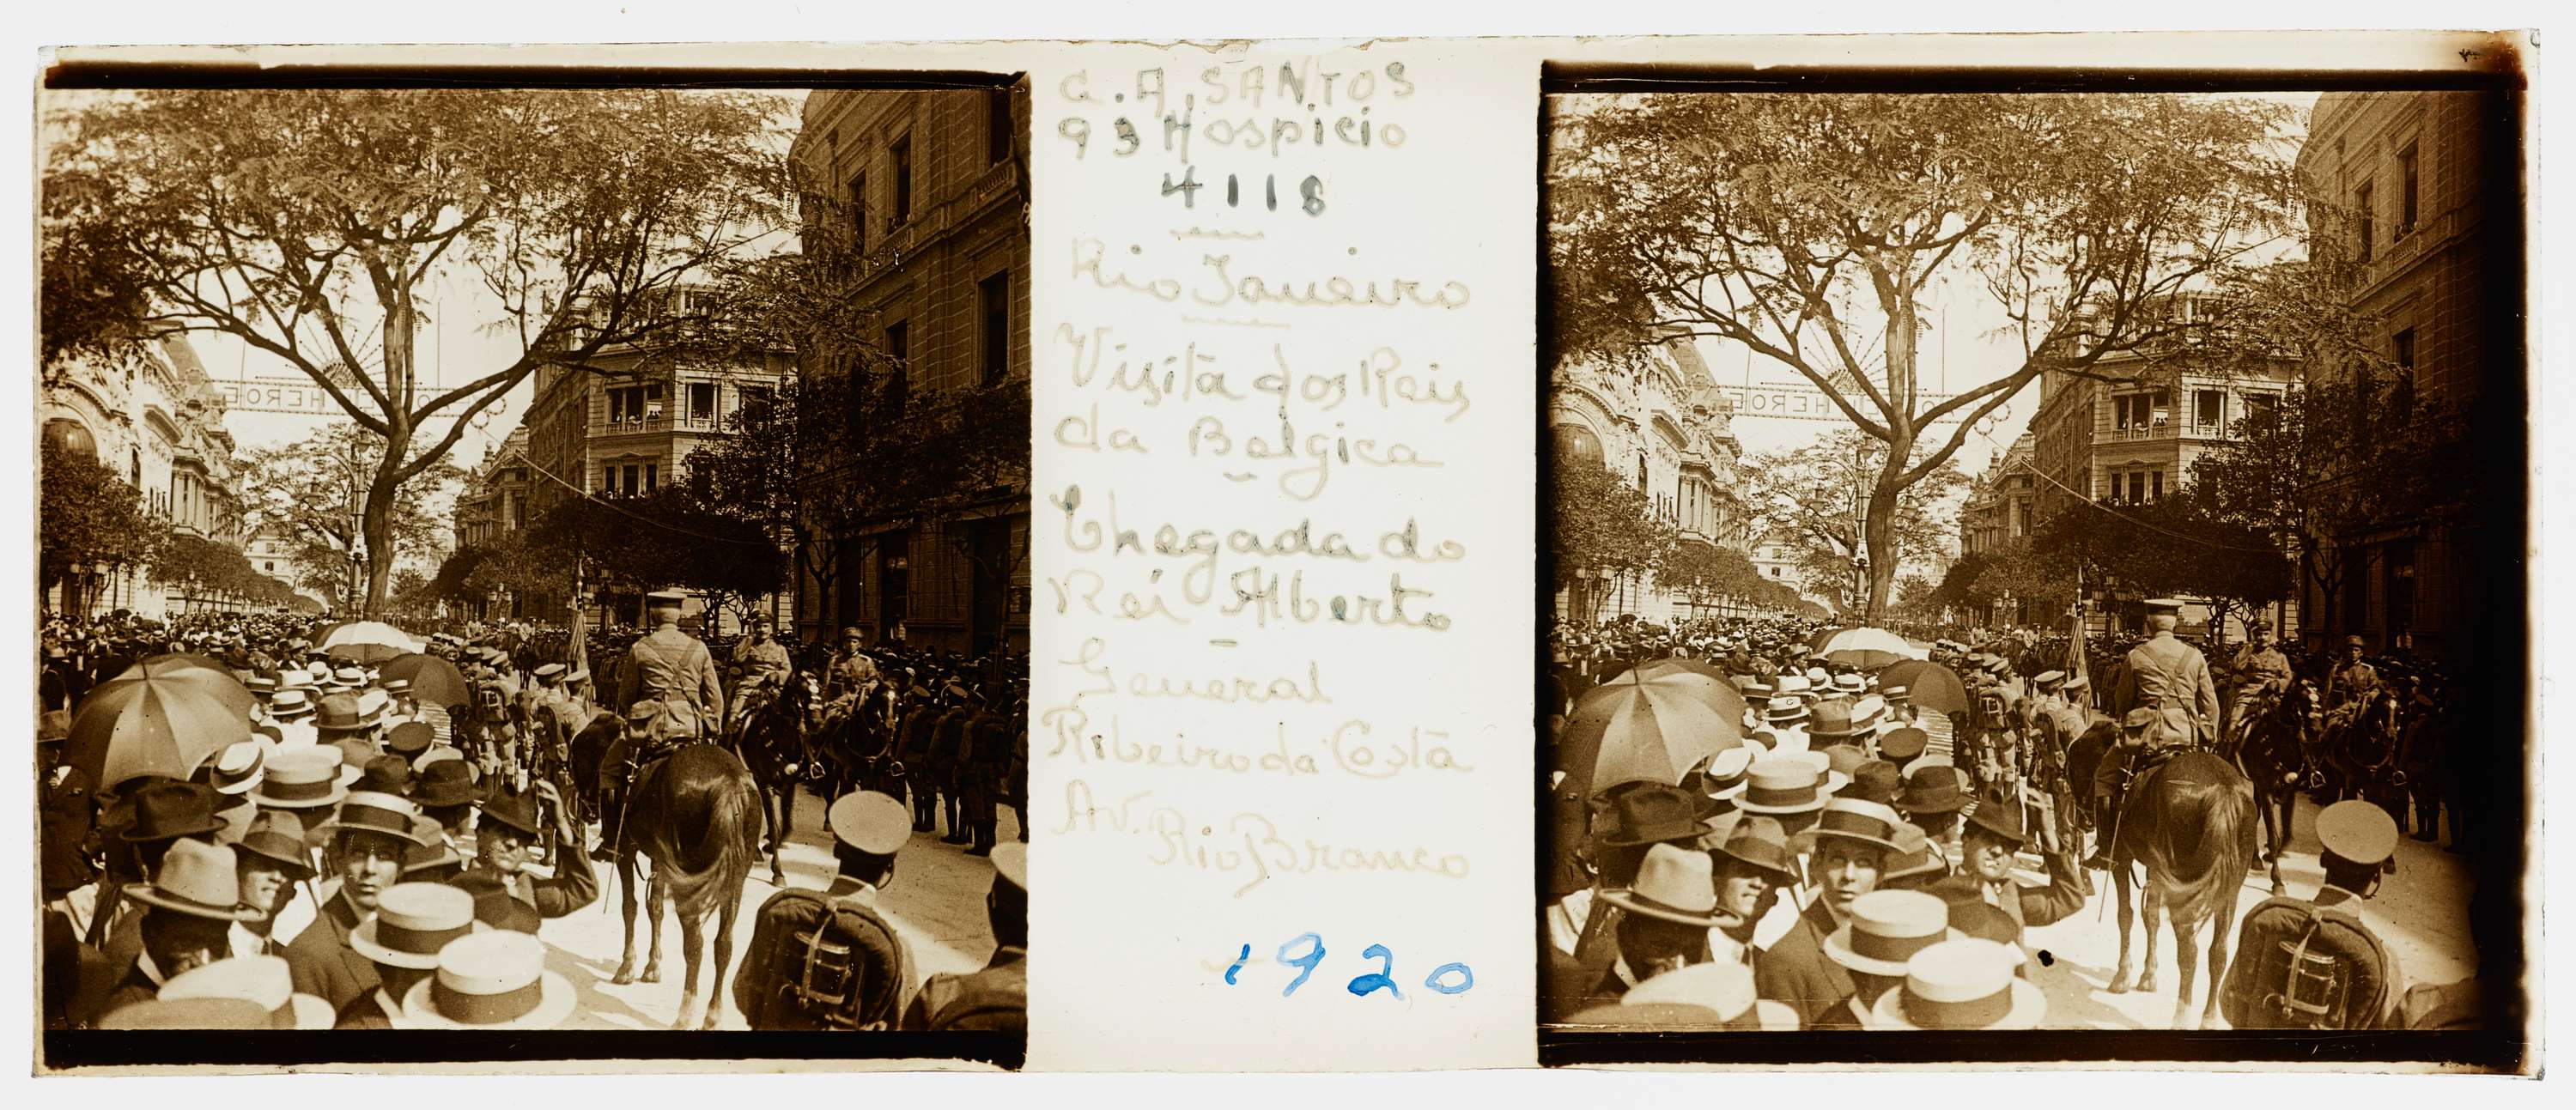 G.A.SANTOS
93 Hospicio
4118
Rio Janeiro
Visita dos Reis
da Belgica
Chegada do
Rei Alberto
General
Ribeiro da Costa
Av.
Rio Branco
1920
HEROE
HEROE